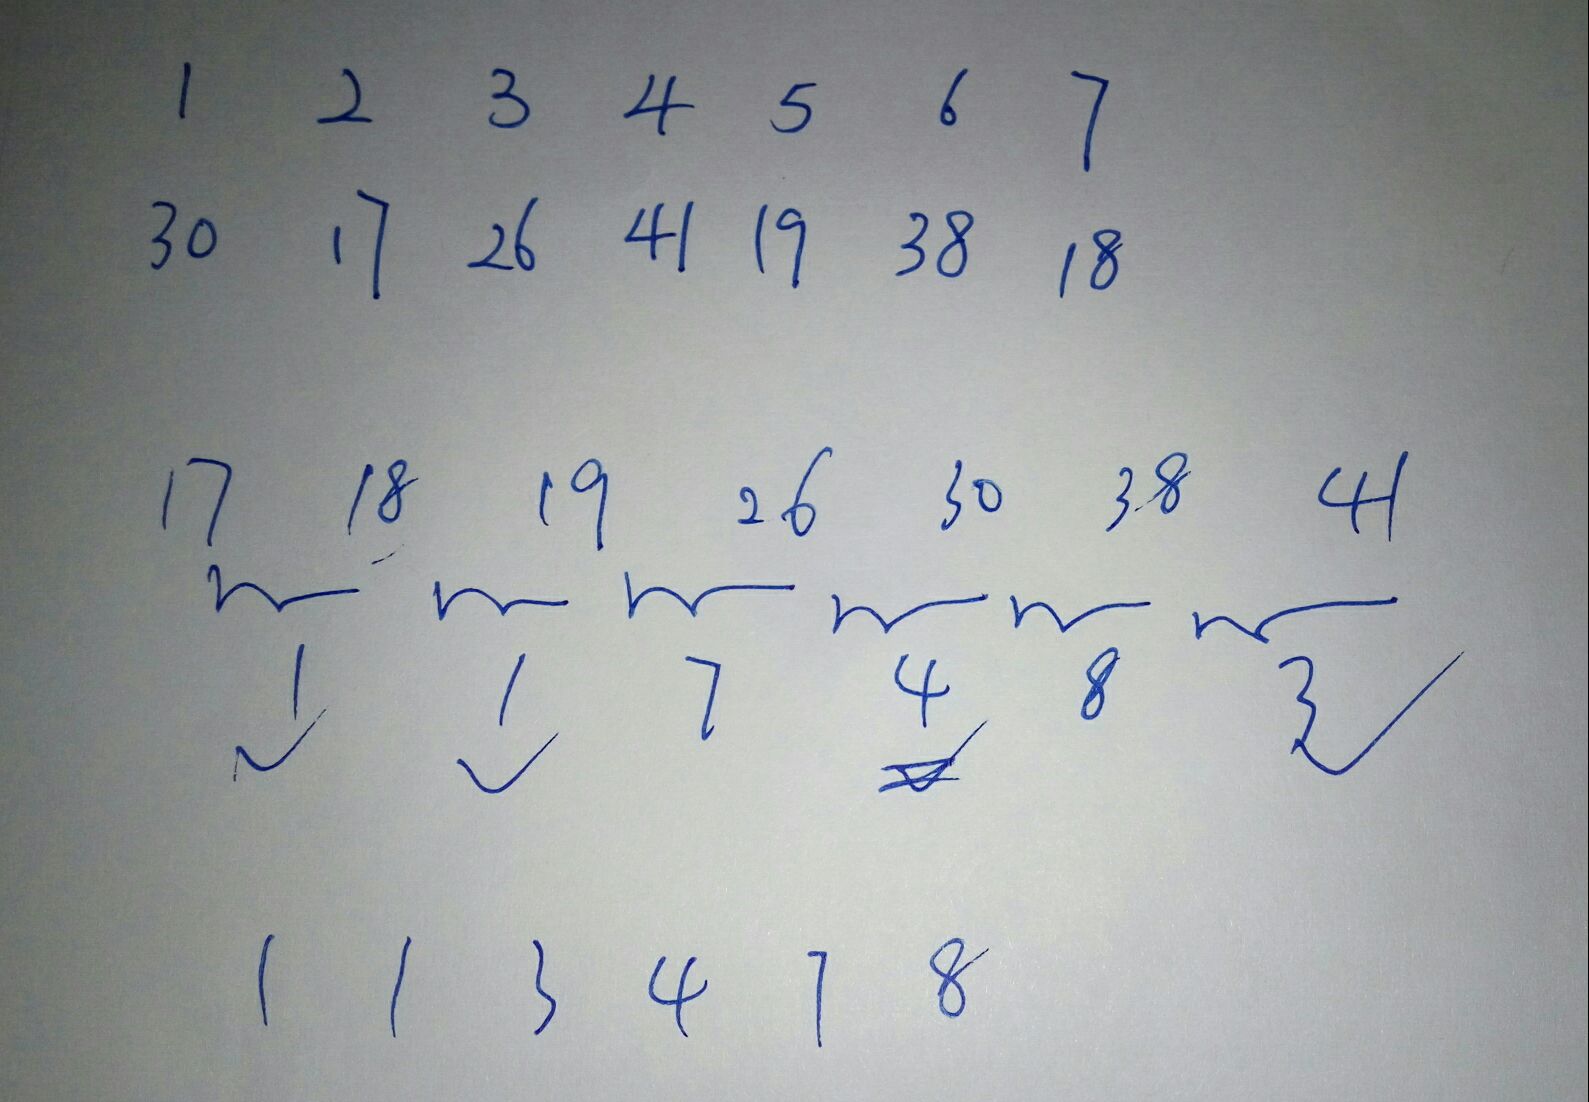 1 2 3 4 5 6 7
30 17 26 41 19 38 18
17 18 19 26 30 38 41
1 1 7 4 8 3
1 1 3 4 7 8